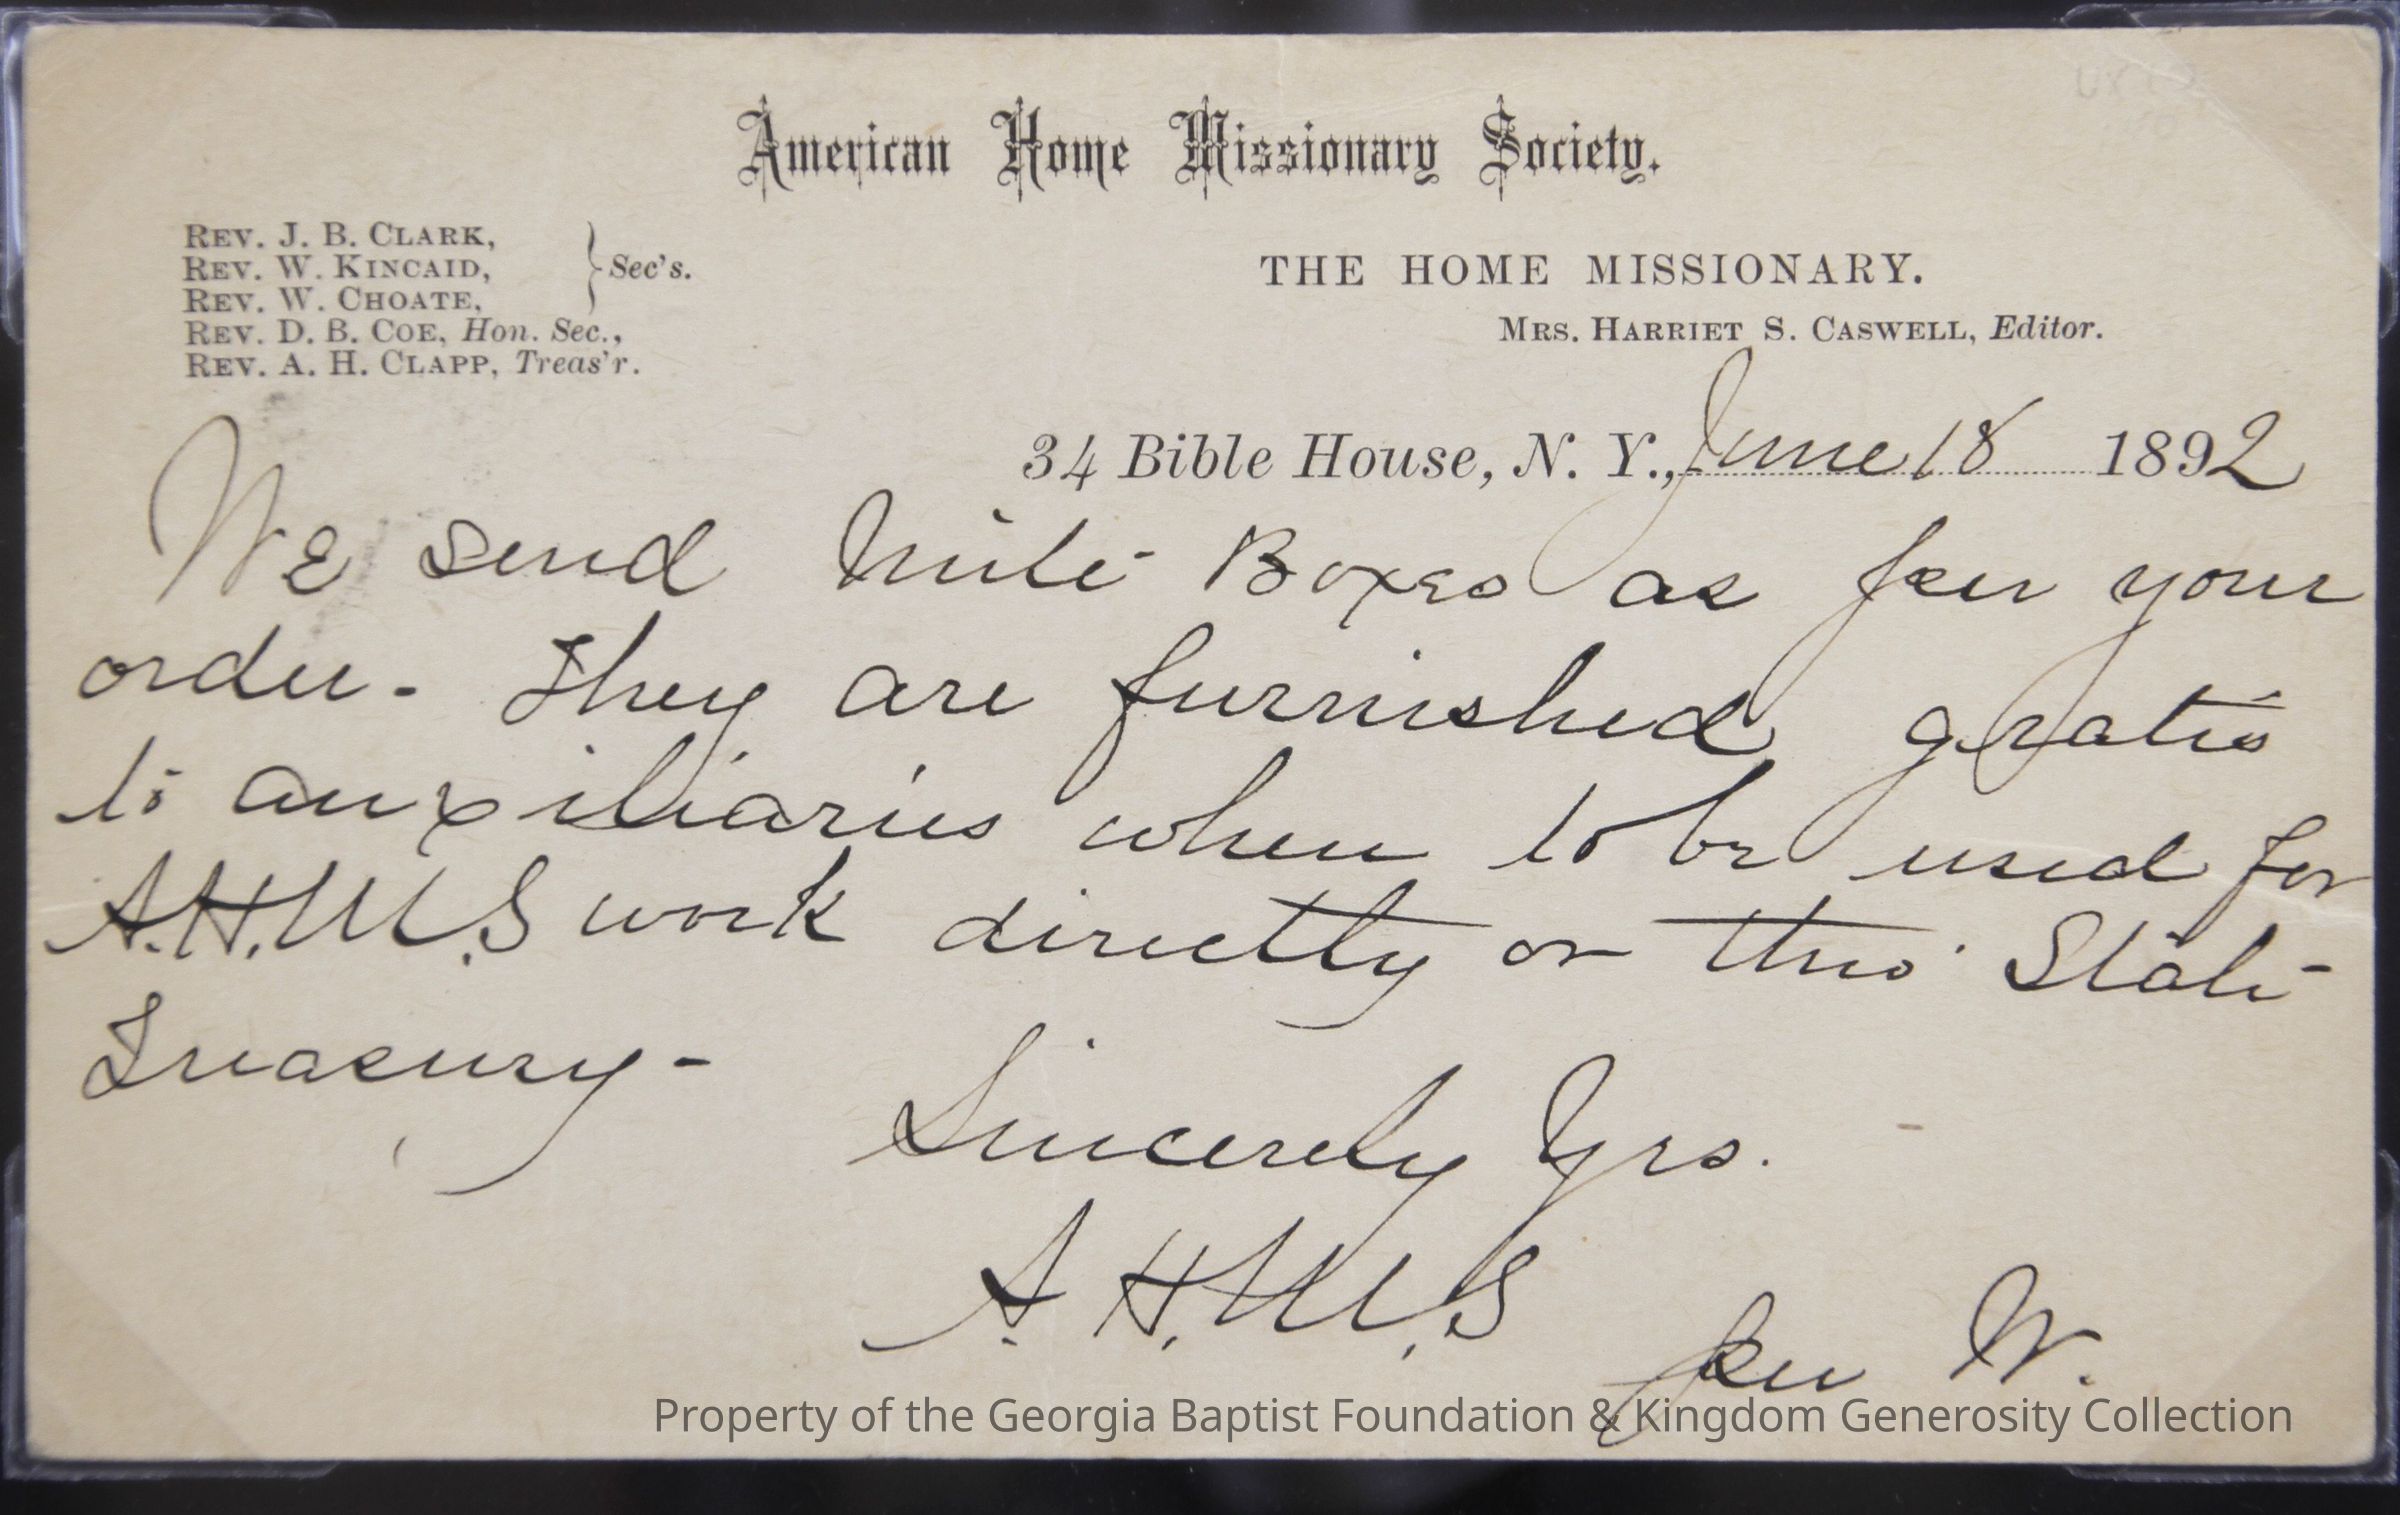 American Home Missionary Society.
Rev. J. B. Clark,
Rev. W. Kincaid,
Rev. W. Choate,
} Sec's.
Rev. D. B. Coe, Hon. Sec.,
Rev. A. H. Clapp, Treas'r.
THE HOME MISSIONARY.
Mrs. Harriet S. Caswell, Editor.
34 Bible House, N. Y., June 18 1892
We send Mite Boxes as per your
order - They are furnished gratis
to auxiliaries when to be used for
A.H.M.S work directly or thro' State
Treasury -
Sincerely Yrs.
A. H.M.S
per W.
Property of the Georgia Baptist Foundation & Kingdom Generosity Collection